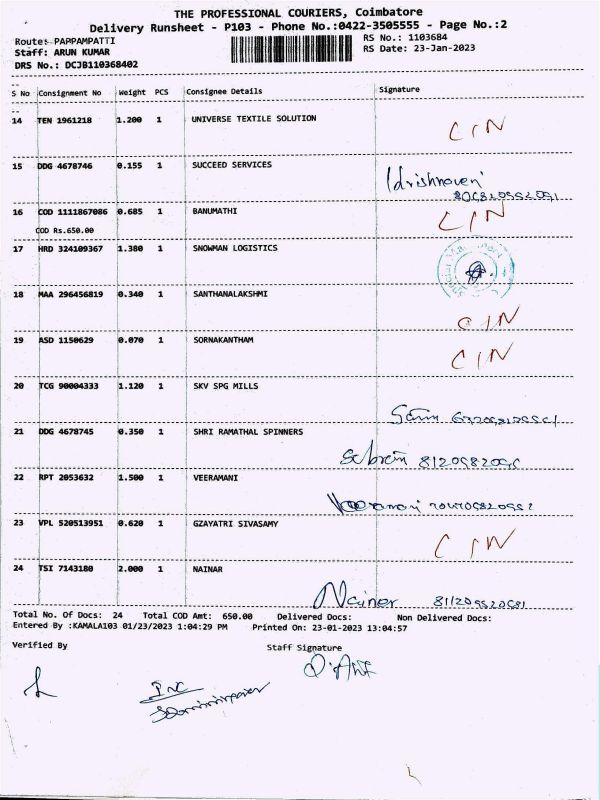 THE PROFESSIONAL COURIERS, Coimbatore
Delivery Runsheet - P103 - Phone No.:0422-3505555 - Page No.:2
Route: PAPPAMPATTI
RS No.: 1103684
Staff: ARUN KUMAR
RS Date: 23-Jan-2023
DRS No.: DCJB110368402
S No Consignment No Weight PCS Consignee Details Signature
14 TEN 1961218 1.200 1 UNIVERSE TEXTILE SOLUTION CIN
15 DDG 4678746 0.155 1 SUCCEED SERVICES
16 COD 1111867086 0.685 1 BANUMATHI CIN
COD Rs.650.00
17 HRD 324109367 1.380 1 SNOWMAN LOGISTICS
18 MAA 296456819 0.340 1 SANTHANALAKSHMI CIN
19 ASD 1150629 0.070 1 SORNAKANTHAM CIN
20 TCG 90004333 1.120 1 SKV SPG MILLS
21 DDG 4678745 0.350 1 SHRI RAMATHAL SPINNERS
22 RPT 2053632 1.500 1 VEERAMANI
23 VPL 520513951 0.620 1 GZAYATRI SIVASAMY CIN
24 TSI 7143180 2.000 1 NAINAR Nainar
Total No. Of Docs: 24 Total COD Amt: 650.00 Delivered Docs: Non Delivered Docs:
Entered By :KAMALA103 01/23/2023 1:04:29 PM Printed On: 23-01-2023 13:04:57
Verified By
Staff Signature